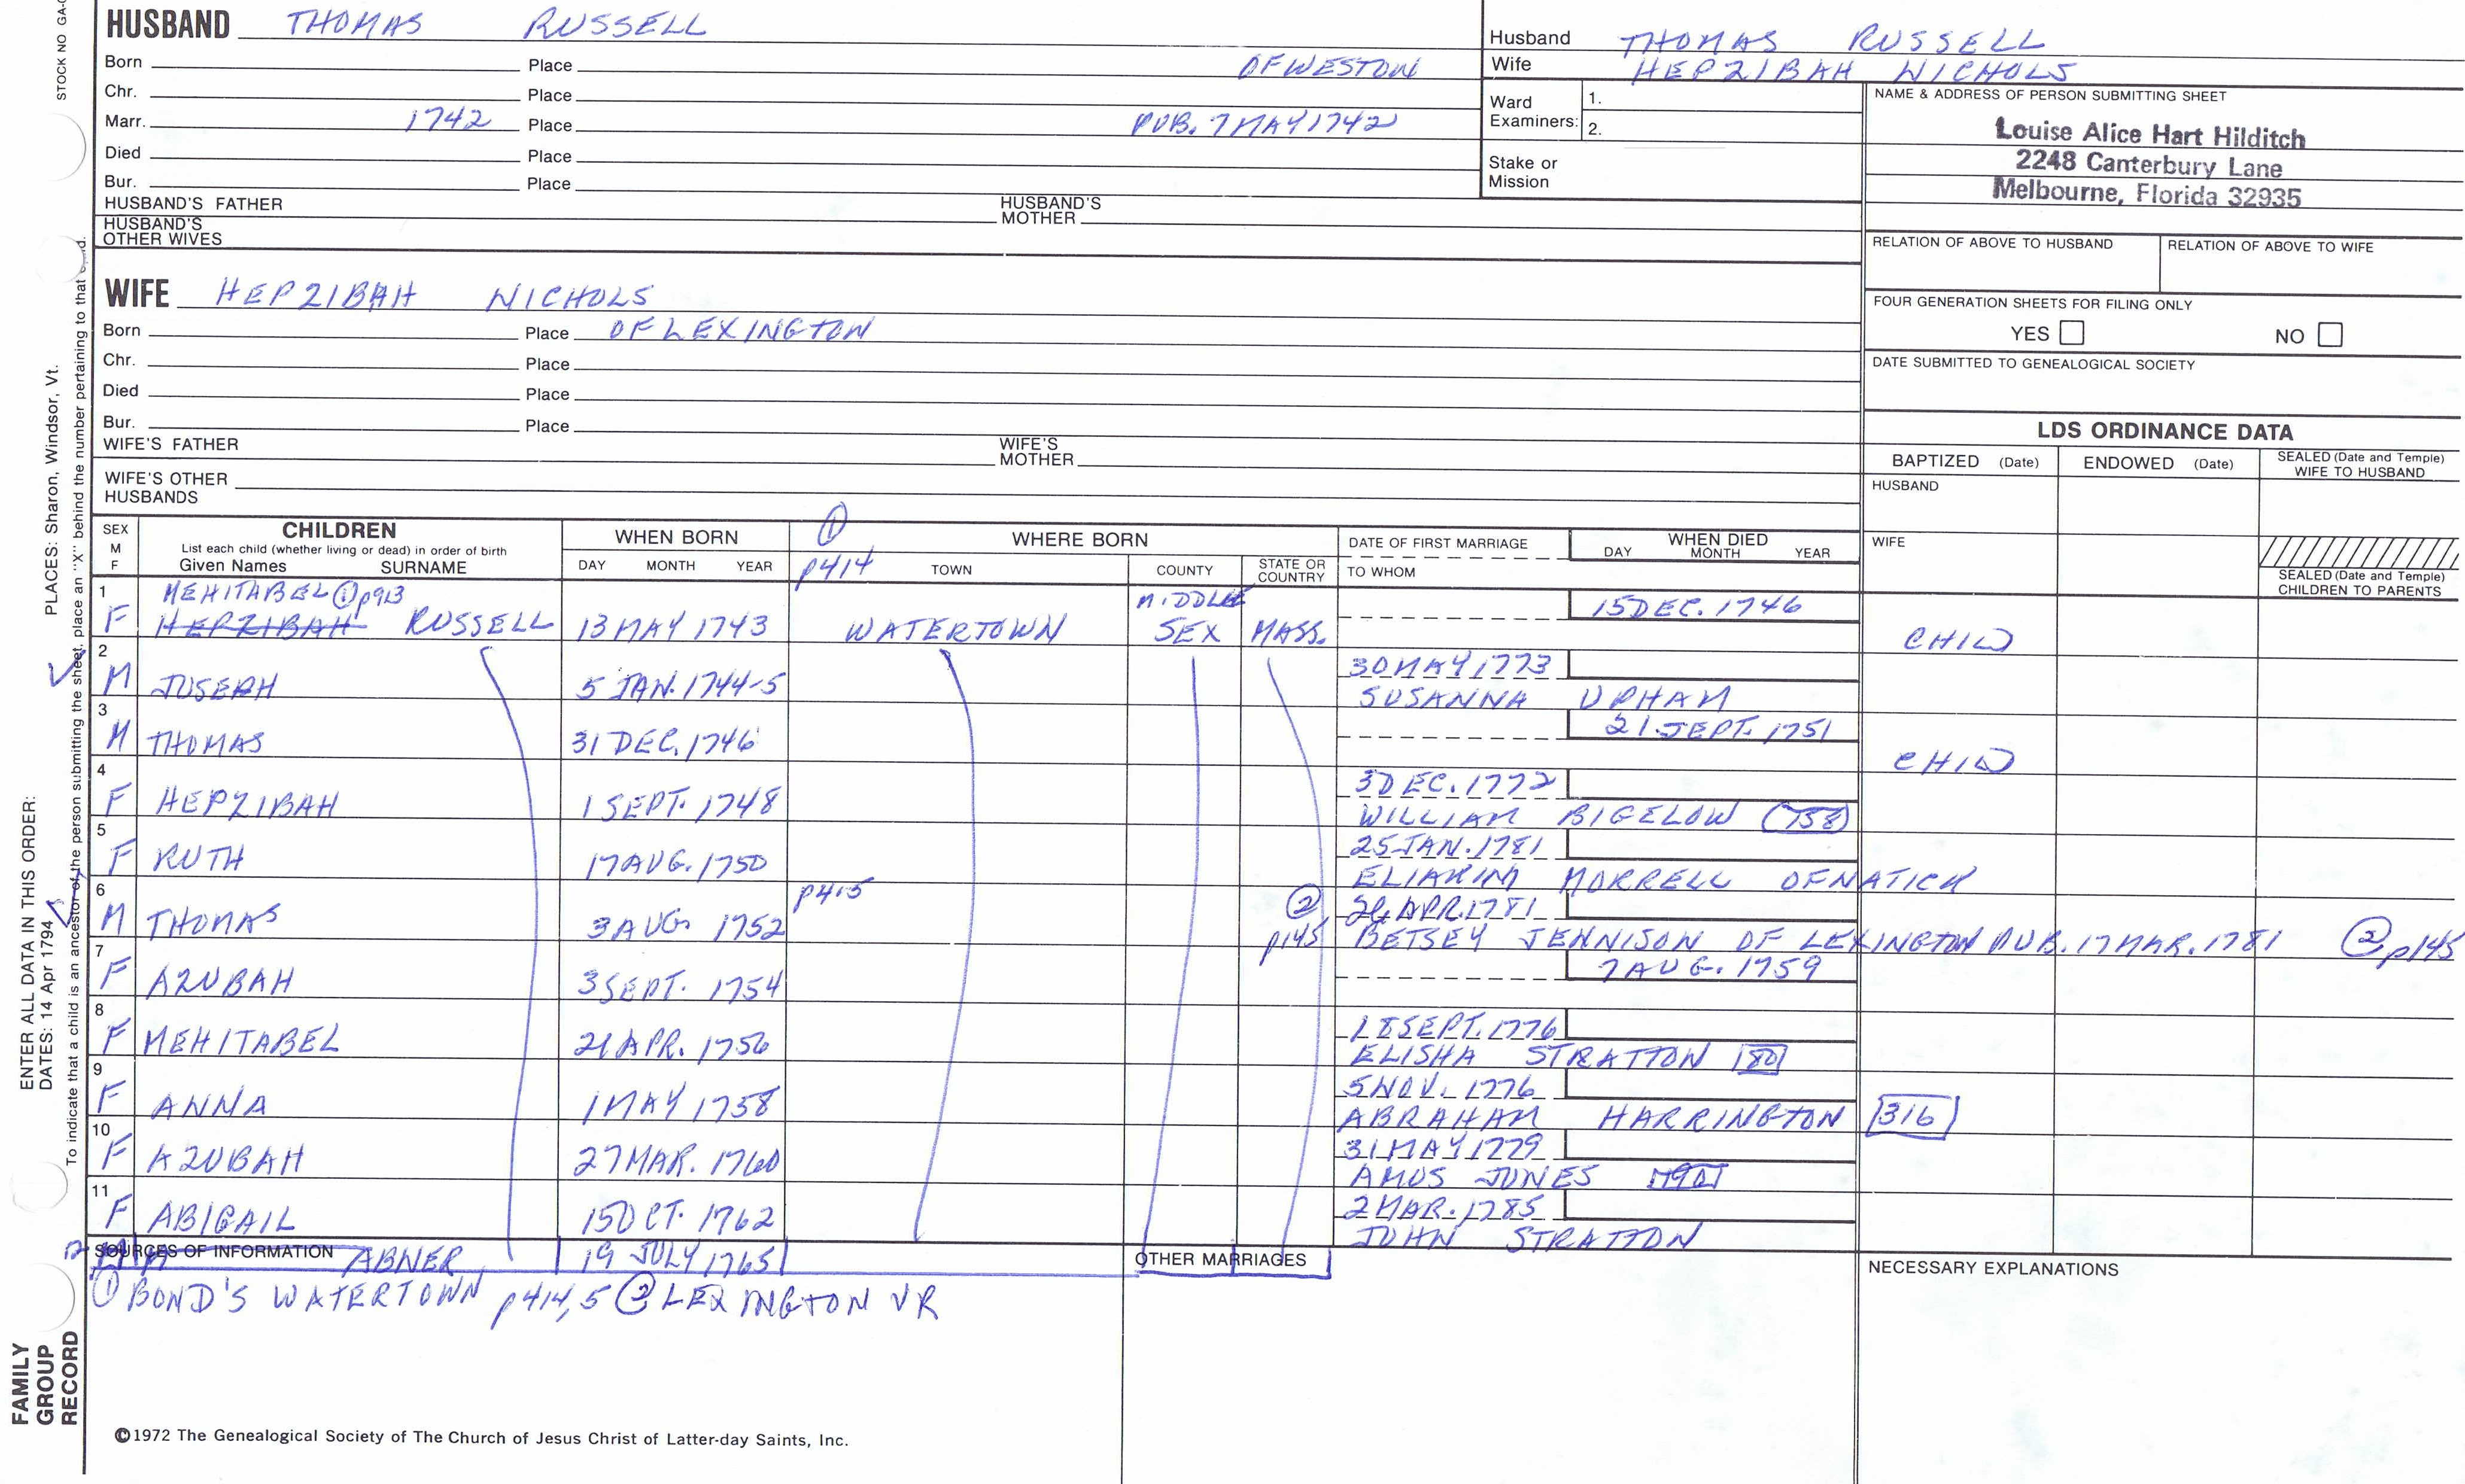 STOCK NO GA-
HUSBAND THOMAS RUSSELL
Born Place OF WESTON
Chr. Place
Marr. 1742 Place PUB. 7 MAY 1742
Died Place
Bur. Place
HUSBAND'S FATHER HUSBAND'S MOTHER
HUSBAND'S OTHER WIVES
Husband THOMAS RUSSELL
Wife HEPZIBAH NICHOLS
Ward Examiners: 1.
2.
Stake or Mission
NAME & ADDRESS OF PERSON SUBMITTING SHEET
Louise Alice Hart Hilditch
2248 Canterbury Lane
Melbourne, Florida 32935
RELATION OF ABOVE TO HUSBAND RELATION OF ABOVE TO WIFE
FOUR GENERATION SHEETS FOR FILING ONLY
YES NO
DATE SUBMITTED TO GENEALOGICAL SOCIETY
WIFE HEPZIBAH NICHOLS
Born Place OF LEXINGTON
Chr. Place
Died Place
Bur. Place
WIFE'S FATHER WIFE'S MOTHER
WIFE'S OTHER HUSBANDS
LDS ORDINANCE DATA
BAPTIZED (Date) ENDOWED (Date) SEALED (Date and Temple) WIFE TO HUSBAND
HUSBAND
WIFE
SEALED (Date and Temple) CHILDREN TO PARENTS
SEX M F
CHILDREN
List each child (whether living or dead) in order of birth
Given Names SURNAME
WHEN BORN
DAY MONTH YEAR
① p414
WHERE BORN
TOWN COUNTY STATE OR COUNTRY
DATE OF FIRST MARRIAGE
TO WHOM
WHEN DIED
DAY MONTH YEAR
1 MEHITABEL ① p913
F HEPZIBAH RUSSELL 13 MAY 1743 WATERTOWN MIDDLE SEX MASS. 15 DEC. 1746 CHILD
2 30 MAY 1773
M JOSEPH 5 JAN. 1744-5 SUSANNA UPHAM
3 21 SEPT. 1751
M THOMAS 31 DEC. 1746 CHILD
4 3 DEC. 1772
F HEPZIBAH 1 SEPT. 1748 WILLIAM BIGELOW
5 25 JAN. 1781
F RUTH 17 AUG. 1750 ELIAKIM MORRELL OF NATICK
6 p415 ② APR. 1781
M THOMAS 3 AUG. 1752 p145 BETSEY JENNISON OF LEXINGTON PUB. 17 MAR. 1781 ② p145
7 7 AUG. 1759
F AZUBAH 3 SEPT. 1754
8 18 SEPT. 1776
F MEHITABEL 21 APR. 1756 ELISHA STRATTON 80
9 5 NOV. 1776
F ANNA 1 MAY 1758 ABRAHAM HARRINGTON 316
10 31 MAY 1779
F AZUBAH 27 MAR. 1760 AMOS JONES
11 2 MAR. 1785
F ABIGAIL 15 OCT. 1762 JOHN STRATTON
12 SOURCES OF INFORMATION ABNER 19 JULY 1765 OTHER MARRIAGES
① BOND'S WATERTOWN p414,5 ② LEXINGTON VR
NECESSARY EXPLANATIONS
©1972 The Genealogical Society of The Church of Jesus Christ of Latter-day Saints, Inc.
ENTER ALL DATA IN THIS ORDER:
DATES: 14 Apr 1794 PLACES: Sharon, Windsor, Vt.
To indicate that a child is an ancestor of the person submitting the sheet, place an "X" behind the number pertaining to that
FAMILY
GROUP
RECORD